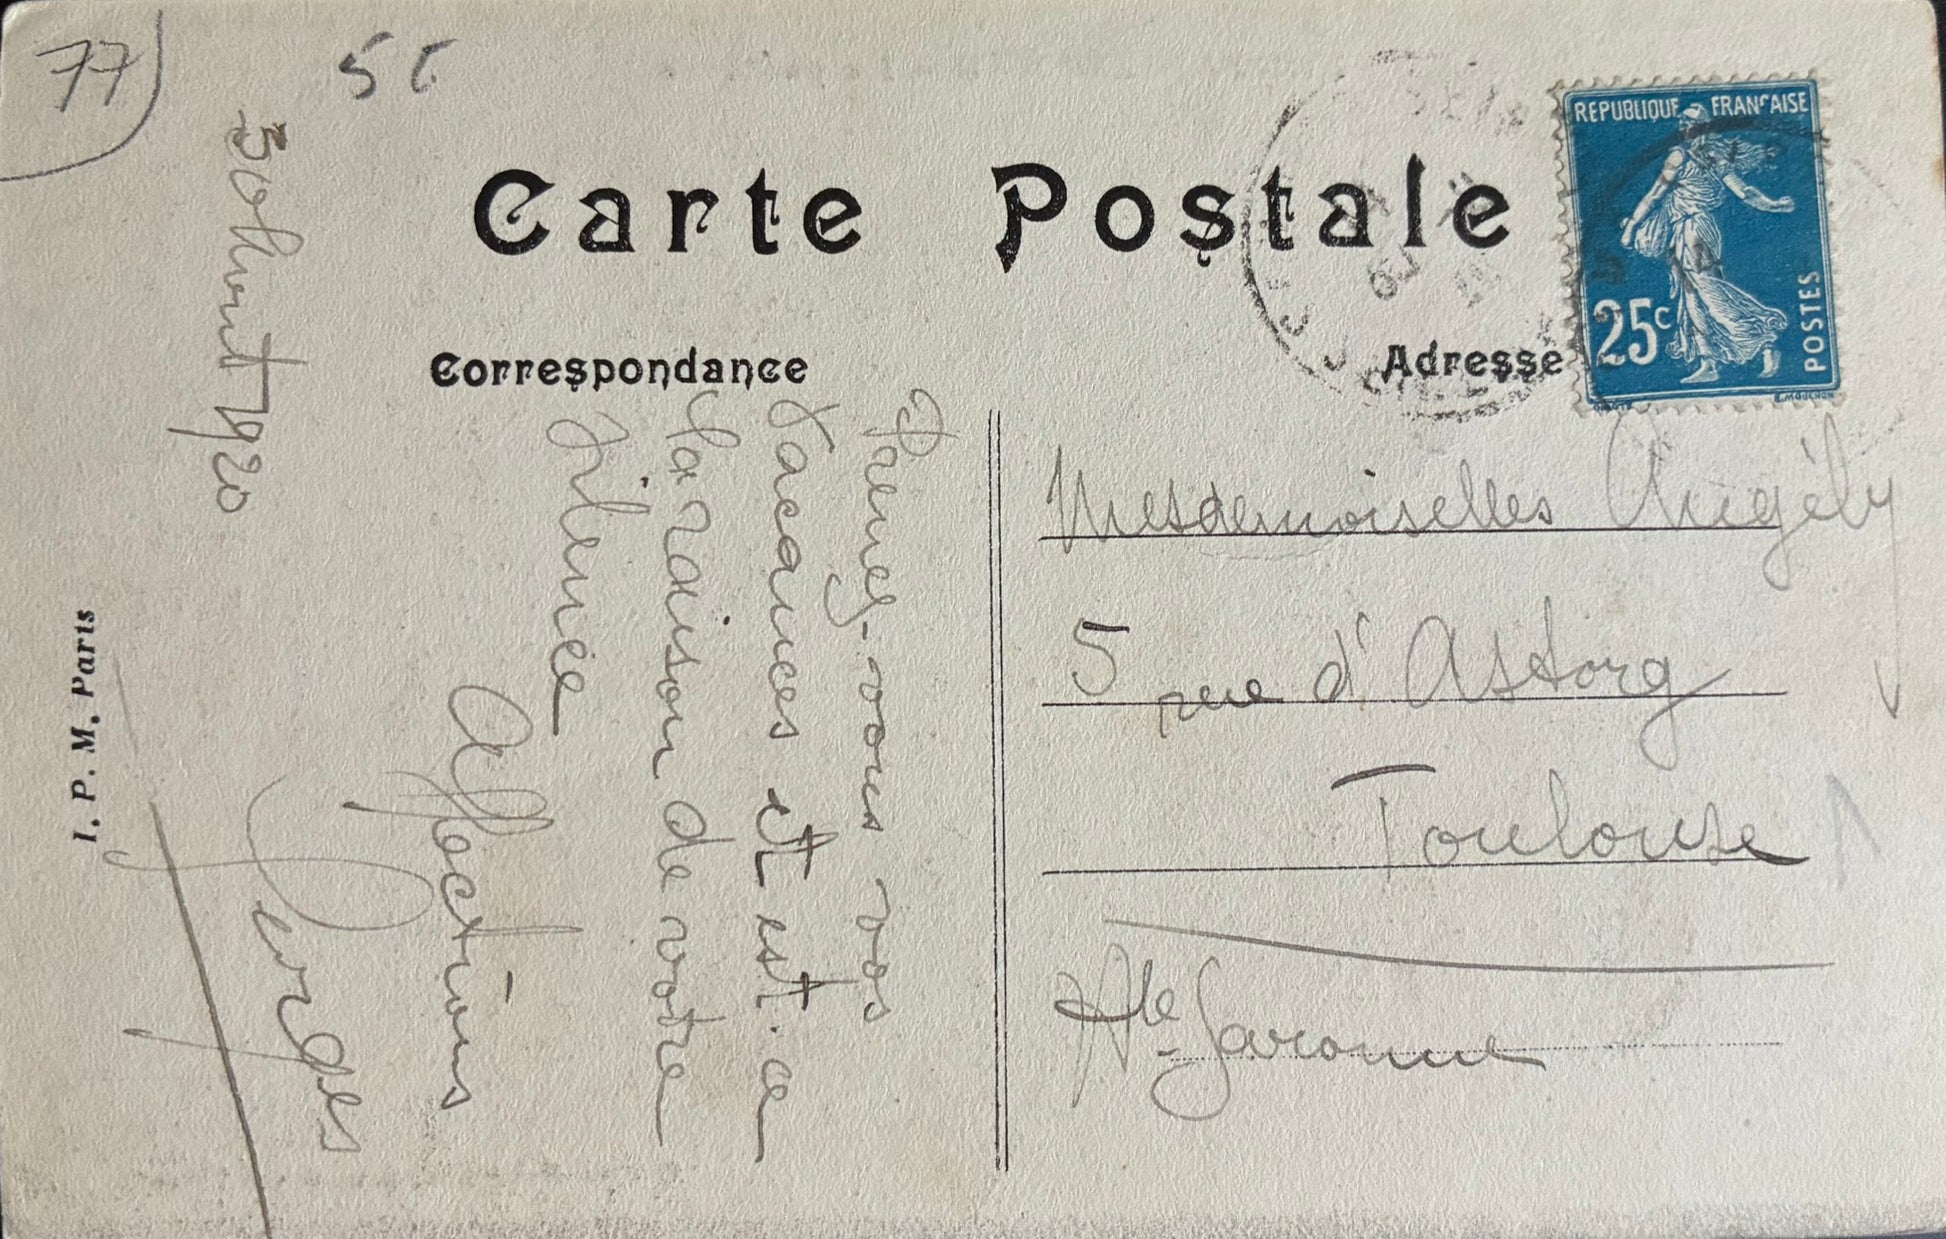 77
5
Carte Postale
REPUBLIQUE FRANÇAISE
25c
POSTES
E. MOUCHON
Correspondance
Adresse
30 Août 1920
Prenez-vous vos
vacances et est-ce
la raison de votre
silence
Affections
Georges
I. P. M. Paris
Mesdemoiselles Angély
5 rue d'Astorg
Toulouse
Hte-Garonne